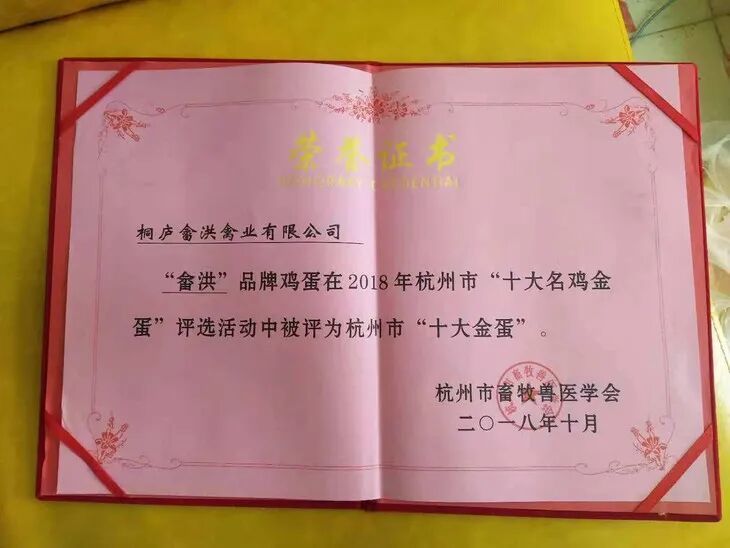 荣誉证书
HONORARY CREDENTIAL
桐庐畲洪禽业有限公司
“畲洪”品牌鸡蛋在2018年杭州市“十大名鸡金
蛋”评选活动中被评为杭州市“十大金蛋”。
杭州市畜牧兽医学会
二〇一八年十月